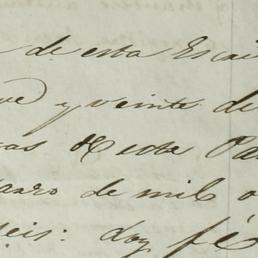 de esta Escri
ve y veinte de
cas de esta Pa
de mil o
seis: doy fé